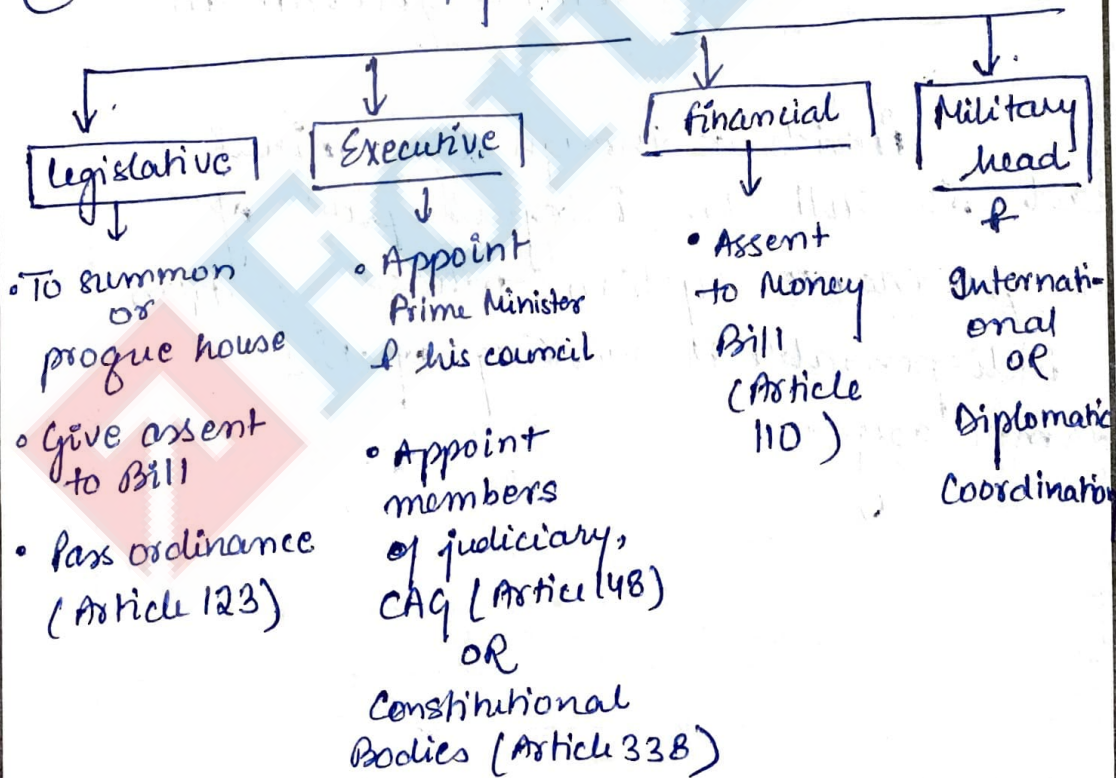 Legislative
• To summon
or
progue house
• Give assent
to Bill
• Pass ordinance
(Article 123)
Executive
• Appoint
Prime Minister
& his council
• Appoint
members
of judiciary,
CAG (Article 148)
OR
Constitutional
Bodies (Article 338)
financial
• Assent
to Money
Bill
(Article
110)
Military
head
&
Internati-
onal
OR
Diplomatic
Coordination